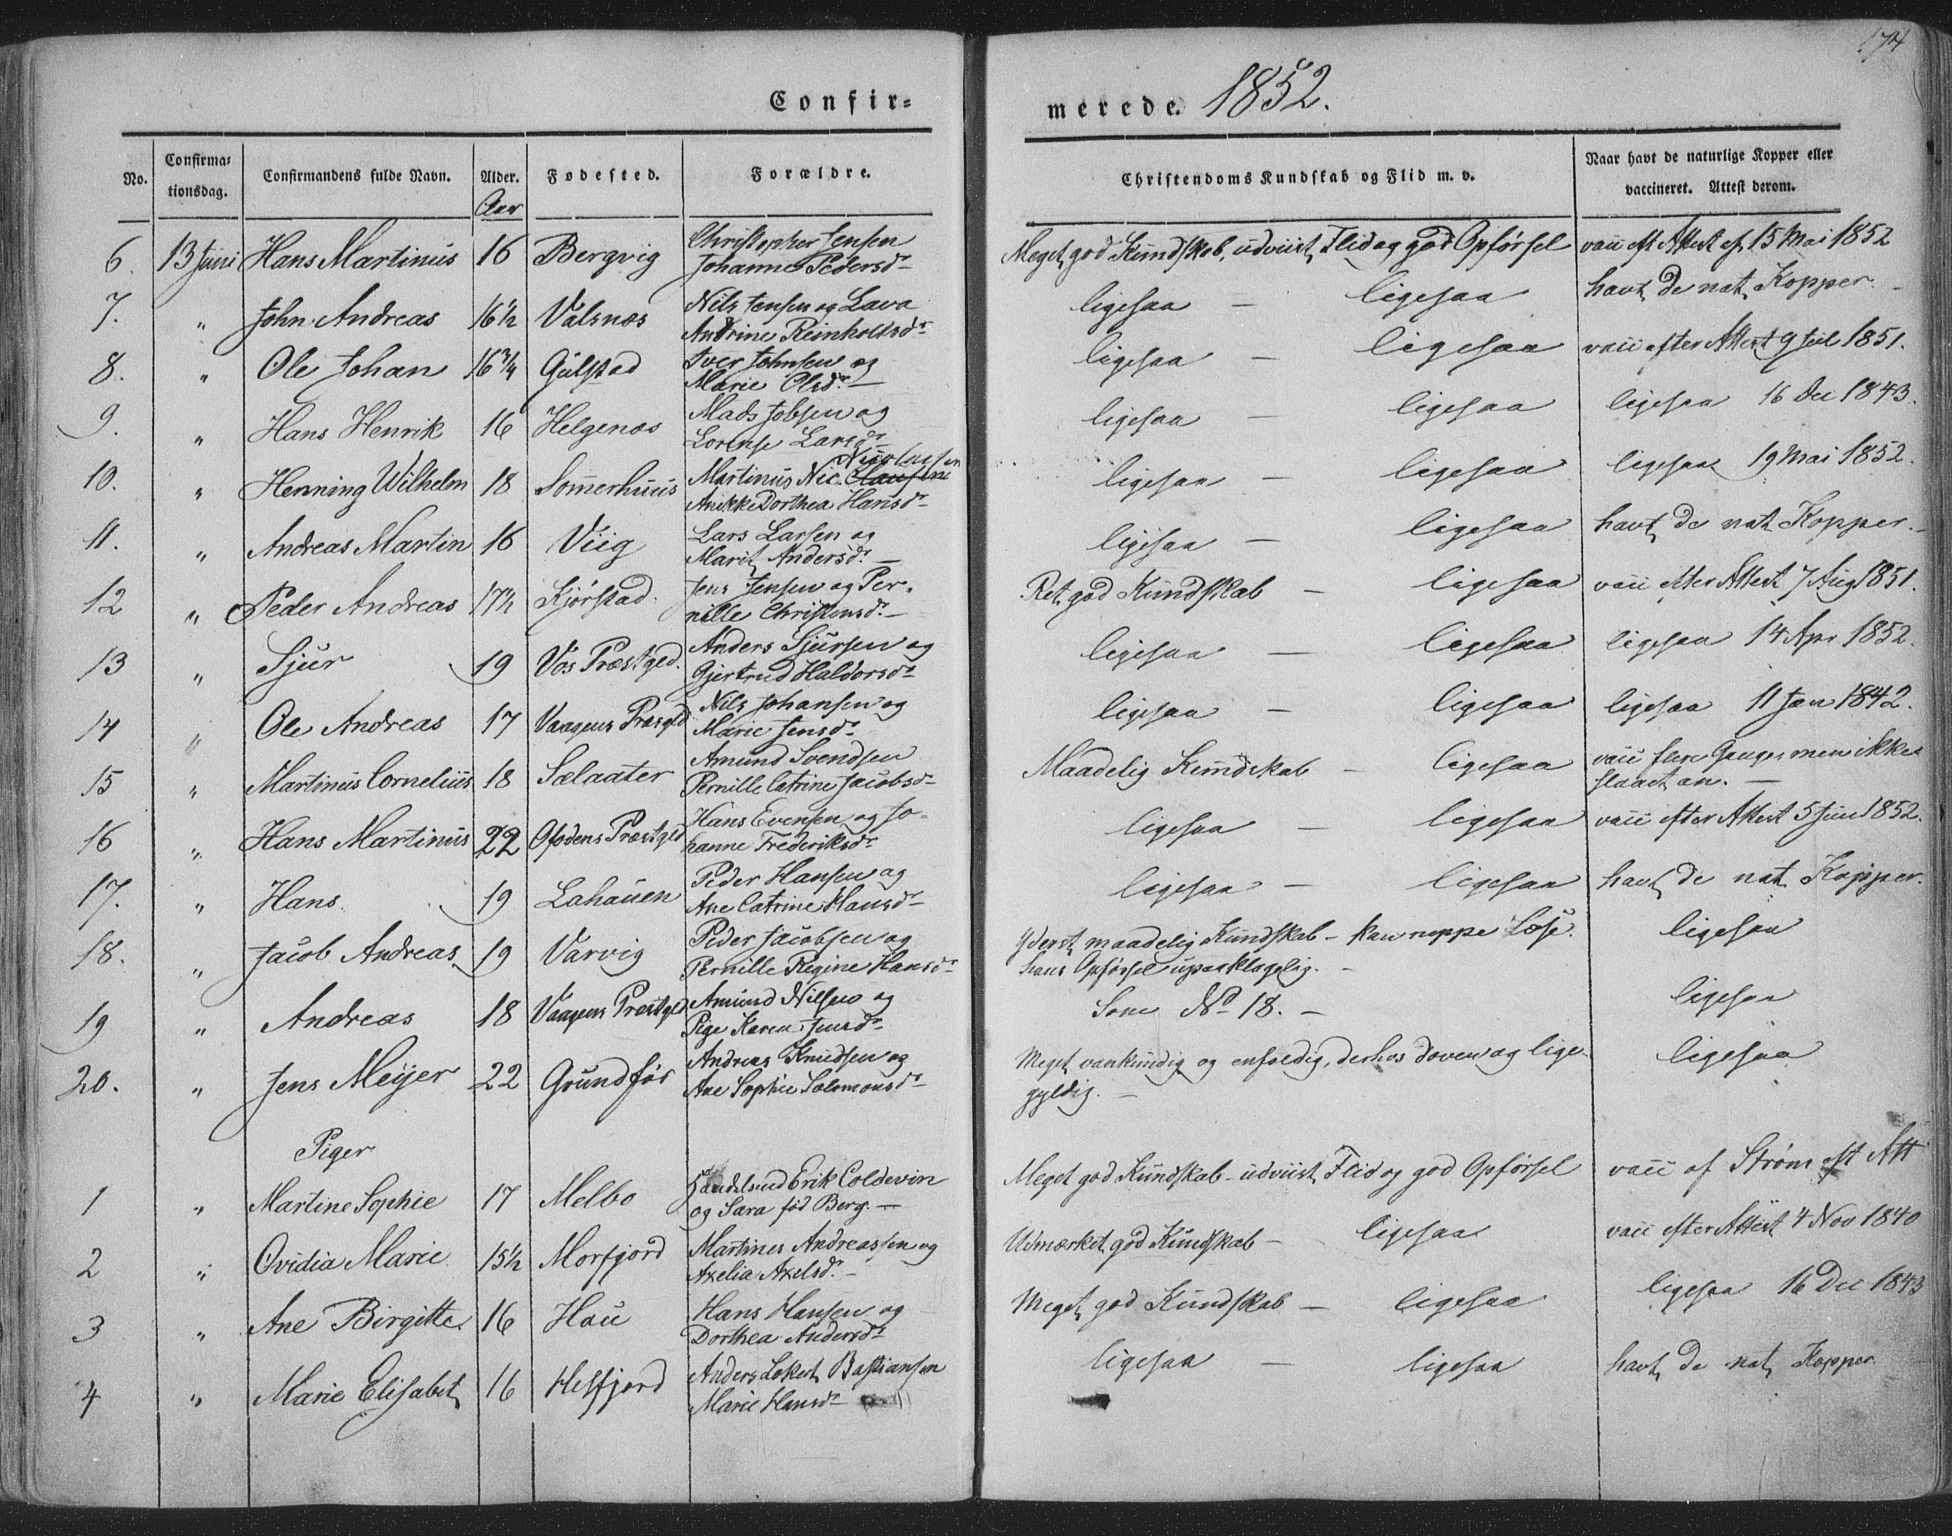 174
Confir=
merede. 1852.
No. Confirma=tionsdag. Confirmandens fulde Navn. Alder. Aar Fødested. Forældre. Christendoms Kundskab og Flid m. v. Naar havt de naturlige Kopper eller vaccineret. Attest derom.
6. 13 Juni Hans Martinus 16 Bergvig Christopher Jensen Johanne Pedersdr Meget god Kundskab, udviist Flid og god Opførsel vacc eft Attest af 15 Mai 1852
7. " John Andreas 16½ Valsnæs Nils Jensen og Lava Andrine Reinholtsdr ligesaa — ligesaa havt de nat Kopper. —
8. " Ole Johan 16¾ Gulstad Iver Johnsen og Marie Olsdr — ligesaa — ligesaa vacc efter Attest 9 1851.
9. " Hans Henrik 16 Helgenæs Mads Jobsen og Lorense Larsdr ligesaa — ligesaa ligesaa 16 Dec 1843.
10. " Henning Wilhelm 18 Sommerhuus Martinus Nic. Clausen Nicolaysen Anikke Dorthea Hansdr ligesaa — ligesaa ligesaa 19 Mai 1852.
11. " Andreas Martin 16 Viig Lars Larsen og Marit Andersdr — ligesaa — ligesaa havt de nat Kopper. —
12 " Peder Andreas 17½ Kjørstad. Jens Jensen og Pernille Christensdr — Ret god Kundskab — ligesaa vacc efter Attest 7 Aug 1851.
13 " Sjur 19 Vos Præstged. Anders Sjursen og Gjertrud Haldorsdr ligesaa — ligesaa ligesaa 14 Apr 1852.
14 " Ole Andreas 17 Vaagens Præsgld Nils Johansen og Marie Jensdr ligesaa — ligesaa ligesaa 11 Jan 1842.
15 " Martinus Cornelius 18 Sælaater Amund Svendsen Pernille Catrine Jacobsdr Maadelig Kundskab — ligesaa vacc flere Gange men ikke slaaet an. —
16 " Hans Martinus 22 Ofodens Præstgld Hans Evensen og Johanne Frederiksdr ligesaa — ligesaa vacc efter Attest 5 Juni 1852.
17. " Hans 19 Lahauen Peder Hansen og Ane Catrine Hansdr ligesaa — ligesaa havt de nat Kopper.
18. " Jacob Andreas 19 Varvig Peder Jacobsen og Pernille Regine Hansdr Yderst maadelig Kundskab — kan neppe læse. hans Opførsel upaaklagelig. — ligesaa
19 " Andreas 18 Vaagens Præstgld Amund Nilsen og Pige Karen Jensdr Som No 18. — ligesaa
20. " Jens Meijer 22 Grundfør Andreas Knudsen og Ane Sophie Salomonsdr Meget vankundig og enfoldig, derhos doven og ligegyldig. — ligesaa
Piger
1 " Martine Sophie 17 Melbo Handelsmd Erik Coldevin og Sara fød Berg. — Meget god Kundskab — udviist Flid og god Opførsel vacc af Strøm eft Att
2 " Ovidia Marie 15½ Morfjord Martines Andreassen og Axelia Axelsdr — Udmærket god Kundskab — ligesaa vacc efter Attest 4 Nov 1840
3 " Ane Birgitte 16 Hau Hans Hansen og Dorthea Andersdr Meget god Kundskab — ligesaa ligesaa 16 Dec 1843
4 " Marie Elisabet 16 Helfjord Anders Lokert Bastiansen Marie Hansdr ligesaa — ligesaa havt de nat Kopper.